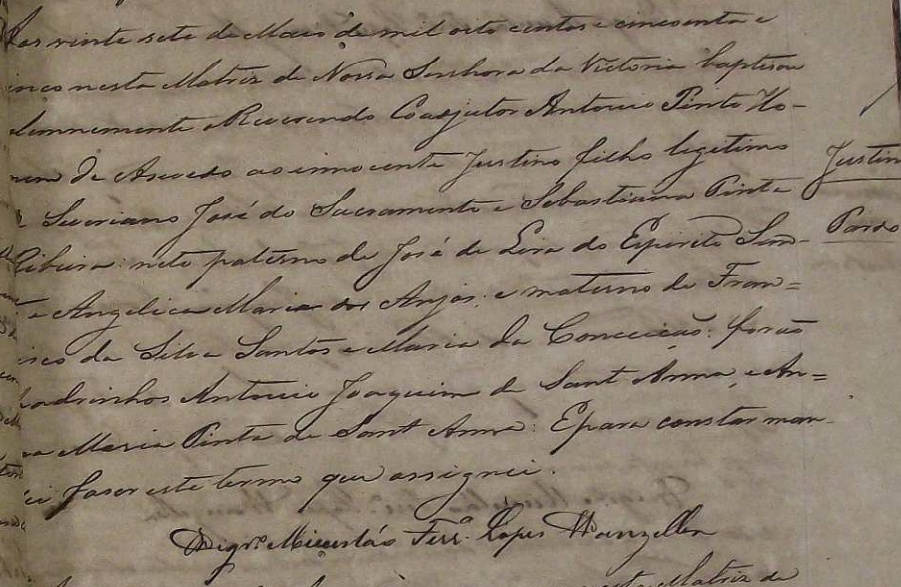 Aos vinte sete de Maio de mil oito centos e cincoenta e
inco nesta Matriz de Nossa Senhora da Victoria baptisou
olemnemente o Reverendo Coadjutor Antonio Pinto Ho-
mem de Asevedo ao innocente Justino filho legitimo
Justin
de Severiano José do Sacramento e Sebastiana Pinta
Pardo
Ribeira: neto paterno de José de Lira do Espirito San-
e Angelica Maria dos Anjos; e materno de Fran=
isco da Silva Santos e Maria da Conceicão: forão
padrinhos Antonio Joaquim de Sant Anna, e An=
na Maria Pinta de Sant Anna: E para constar man-
ei faser este termo que assignei.
Vigrº Lopes
esta Matriz de